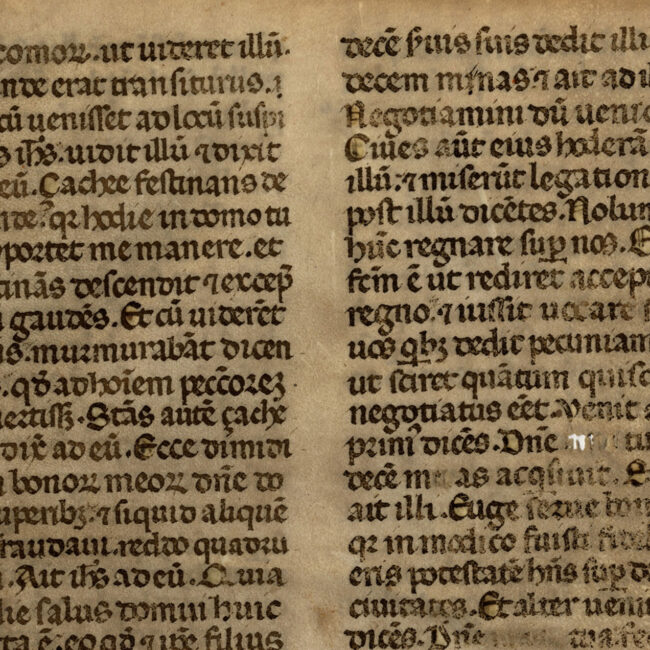 comoꝝ. ut uideret illū.
nde erat transiturus. ⁊
cū uenisset ad locū suspi
s ih̄s. uidit illū ⁊ dixit
eū. Zachee festinans de
nde. qꝛ hodie in domo tu
portet me manere. et
tinās descendit ⁊ excep̄
gaudēs. Et cū uiderēt
s. murmurabāt dicen
. qd̄ ad hoīem peccōrēꝫ
uertissꝫ. Stās autē zache
dix̄ ad eū. Ecce dimidi
bonoꝝ meoꝝ dn̄e do
uperibꝫ. ⁊ siquid aliquē
raudaui. reddo quadru
. Ait ih̄s ad eū. Quia
die salus domui huic
ta ē. eo qd̄ ⁊ ip̄e filius
decē s̄uis suis dedit illi
decem mnas ⁊ ait ad il
Negotiamini dū uenio
Ciues aūt eius oderā
illū. ⁊ miserūt legation
post illū dicētes. Nolum
hūc regnare sup̄ nos. E
fc̄m ē ut rediret accep
regno. ⁊ iussit uocare s
uos qbꝫ dedit pecuniam
ut sciret quātum quisq
negotiatus eēt. Venit a
prim' dicēs. Dn̄e tu
decē m as acqsiuit. E
ait illi. Euge serue bon
qꝛ in modico fuisti fid
eris potestatē hn̄s sup̄ d
ciuitates. Et alter ueni
dicēs. Dn̄e tua fe